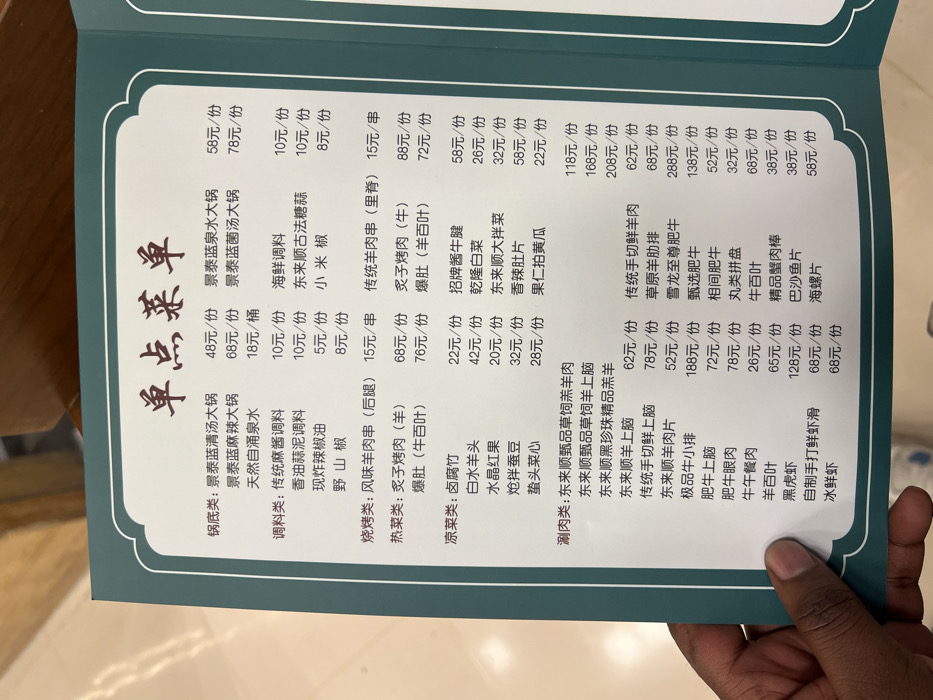 单点菜单
锅底类：景泰蓝清汤大锅 48元/份 景泰蓝泉水大锅 58元/份
景泰蓝麻辣大锅 68元/份 景泰蓝菌汤大锅 78元/份
天然自涌泉水 18元/桶
调料类：传统麻酱调料 10元/份 海鲜调料 10元/份
香油蒜泥调料 10元/份 东来顺古法糖蒜 10元/份
现炸辣椒油 5元/份 小 米 椒 8元/份
野 山 椒 8元/份
烧烤类：风味羊肉串（后腿） 15元/串 传统羊肉串（里脊） 15元/串
热菜类：炙子烤肉（羊） 68元/份 炙子烤肉（牛） 88元/份
爆肚（牛百叶） 76元/份 爆肚（羊百叶） 72元/份
凉菜类：卤腐竹 22元/份 招牌酱牛腱 58元/份
白水羊头 42元/份 乾隆白菜 26元/份
水晶红果 20元/份 东来顺大拌菜 32元/份
炝拌蚕豆 32元/份 香辣肚片 58元/份
蜇头菜心 28元/份 果仁拍黄瓜 22元/份
涮肉类：东来顺甄品草饲羔羊肉 118元/份
东来顺甄品草饲羊上脑 168元/份
东来顺黑珍珠精品羔羊 208元/份
东来顺羊上脑 62元/份 传统手切鲜羊肉 62元/份
传统手切鲜上脑 78元/份 草原羊肋排 68元/份
东来顺羊肉片 52元/份 雪龙至尊肥牛 288元/份
极品牛小排 188元/份 甄选肥牛 138元/份
肥牛上脑 72元/份 相间肥牛 52元/份
肥牛眼肉 78元/份 丸类拼盘 32元/份
牛午餐肉 26元/份 牛百叶 68元/份
羊百叶 65元/份 精品蟹肉棒 38元/份
黑虎虾 128元/份 巴沙鱼片 38元/份
自制手打鲜虾滑 68元/份 海螺片 58元/份
冰鲜虾 68元/份